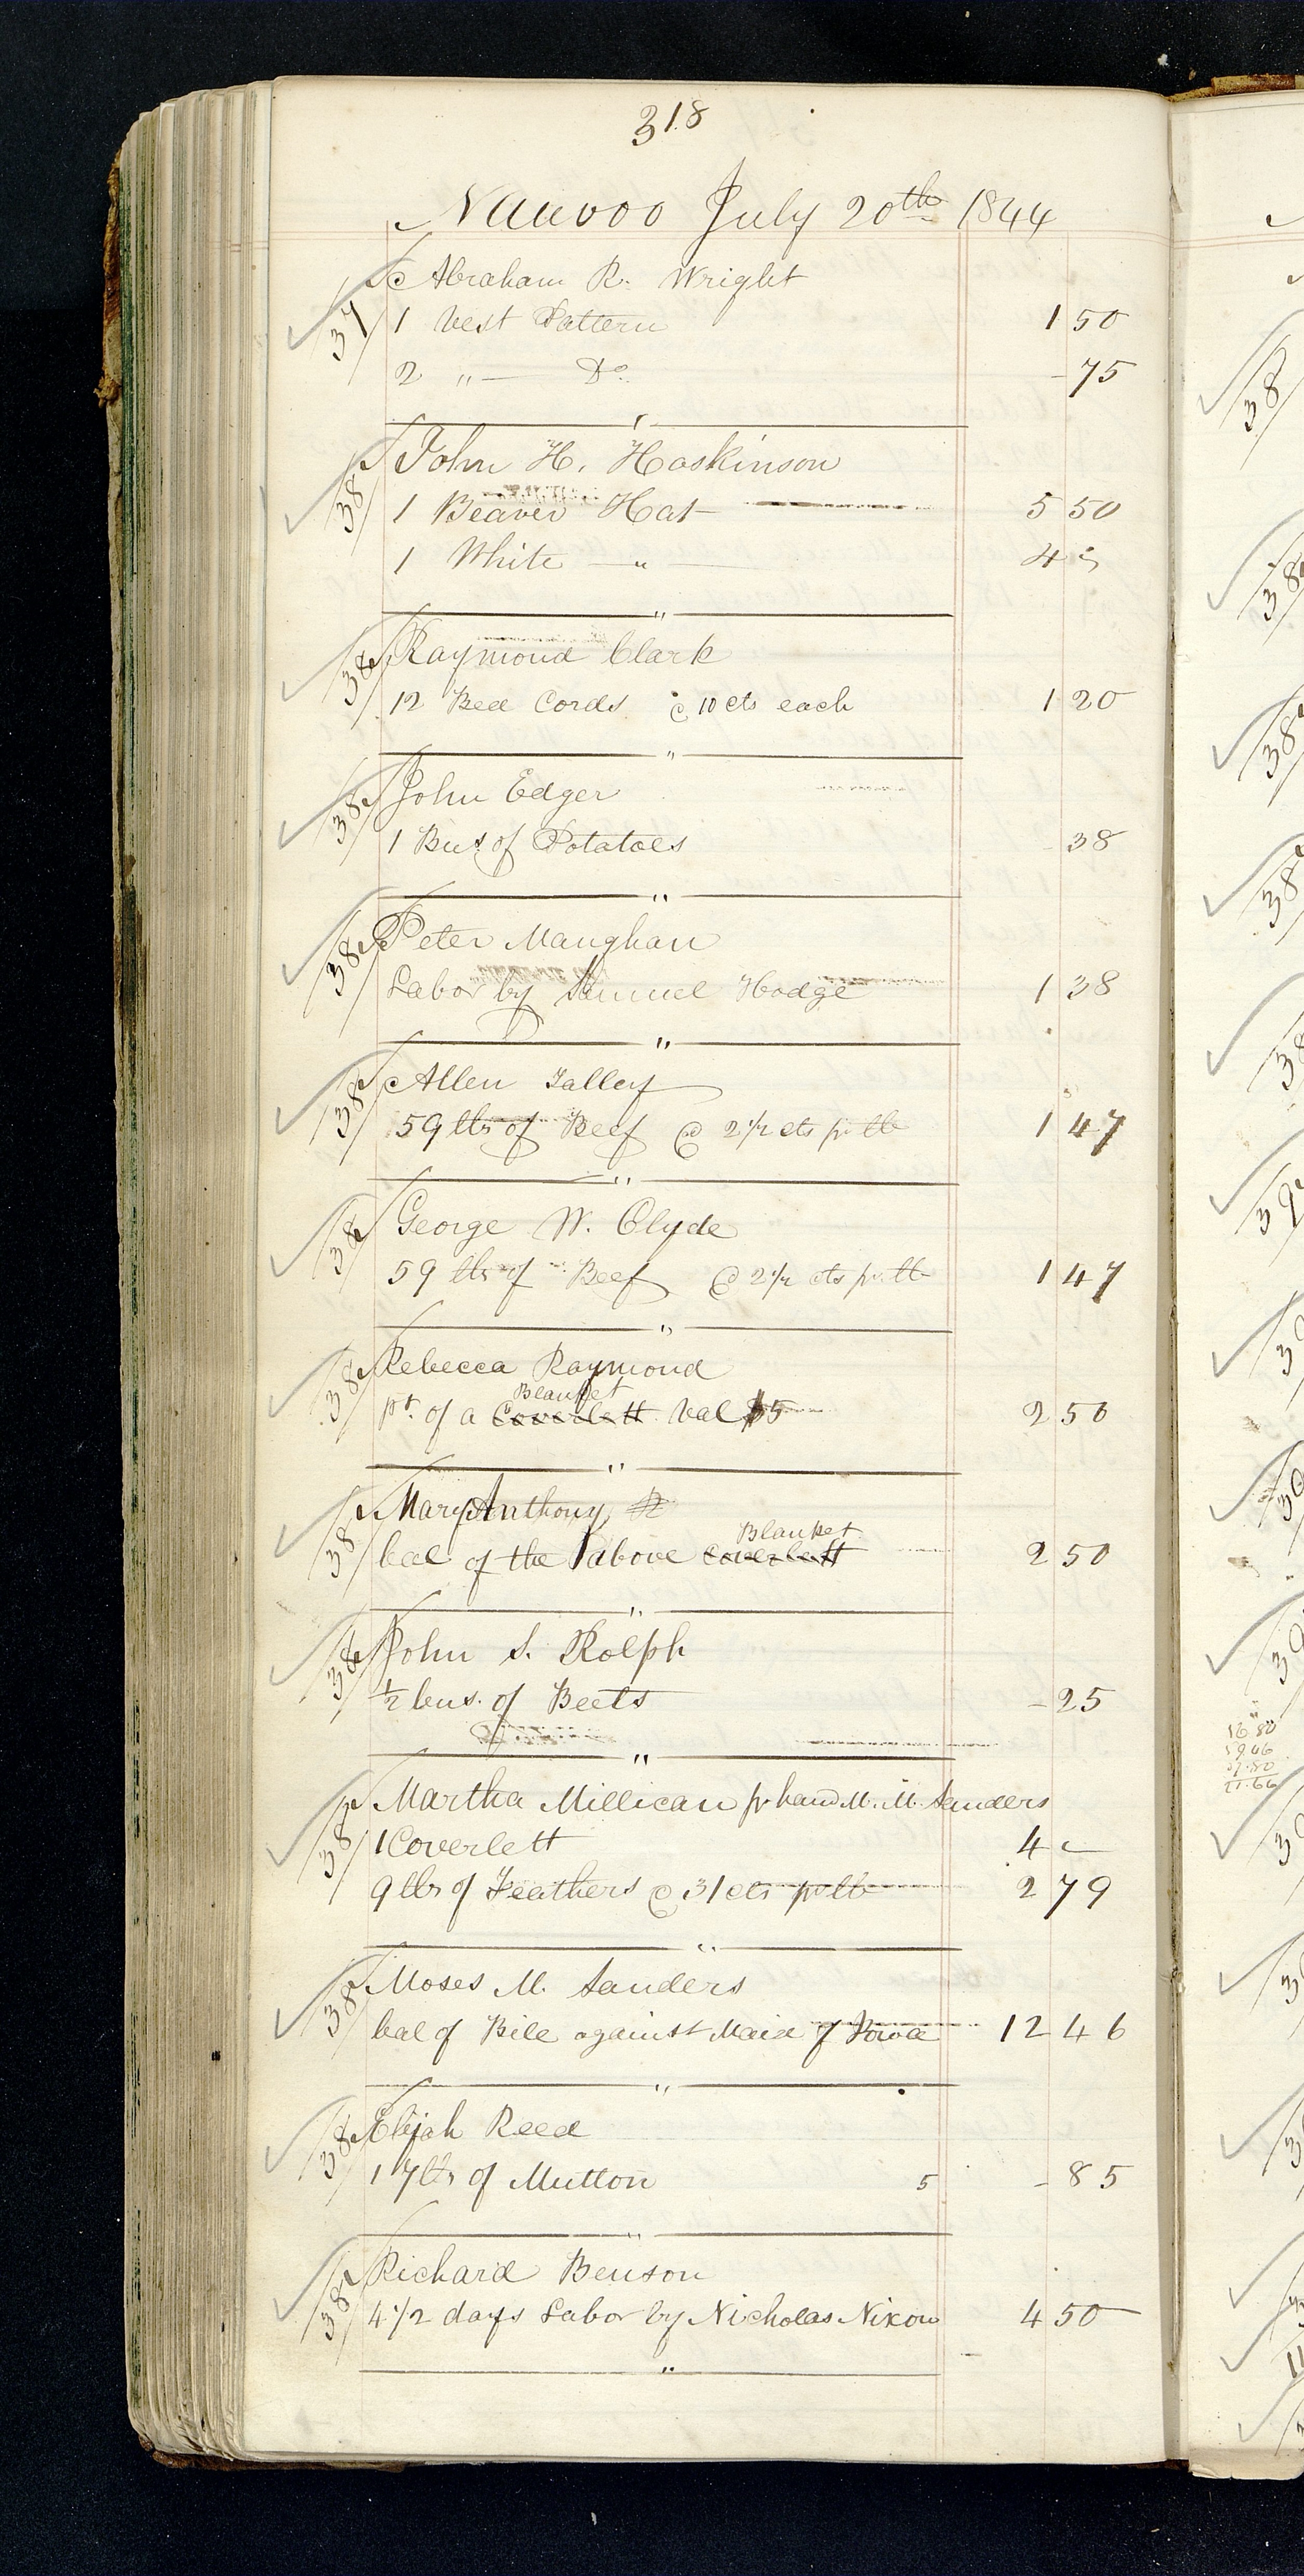 318
Nauvoo July 20th 1844
37 Abraham R. Wright
1 Vest Pattern 1 50
2 " — Do. - 75
38 John H. Hoskinson
1 Beaver Hat 5 50
1 White — " — 4 "
38 Raymond Clark
12 Bed Cords @ 10 cts each 1 20
38 John Edger
1 Bus. of Potatoes 38
38 Peter Maughan
Labor by Samuel Hodge 1 38
38 Allen Talley
59 lbs of Beef @ 2 1/2 cts pr lb 1 47
38 George W. Clyde
59 lbs of Beef @ 2 1/2 cts pr lb 1 47
38 Rebecca Raymond
Blanket
pt. of a Coverlett val $5 2 50
38 Mary Anthony
Blanket
bal of the above Coverlett 2 50
38 John S. Rolph
1/2 bus. of Beets - 25
38 Martha Millican pr hand M. M. Sanders
1 Coverlett 4 -
9 lbs of Feathers @ 31 cts pr lb 2 79
38 Moses M. Sanders
bal of Bill against Maid of Iowa 12 46
38 Elijah Reed
17 lbs of Mutton 5 - 85
38 Richard Benson
4 1/2 days Labor by Nicholas Nixon 4 50